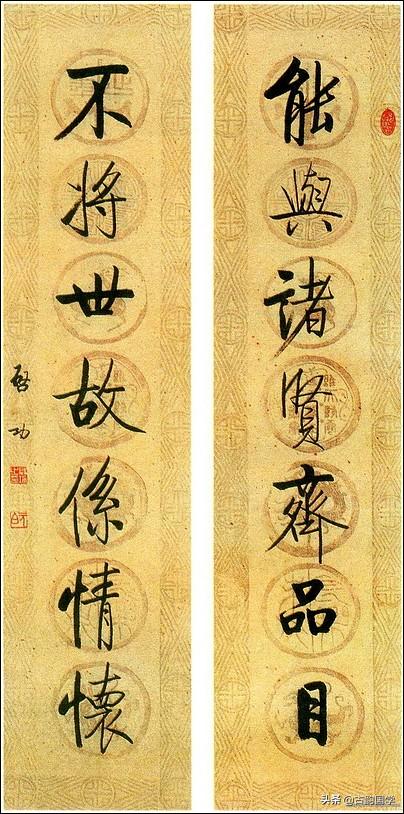 能與諸賢齊品目
不將世故係情懷
啓功
头条 @古韵国学